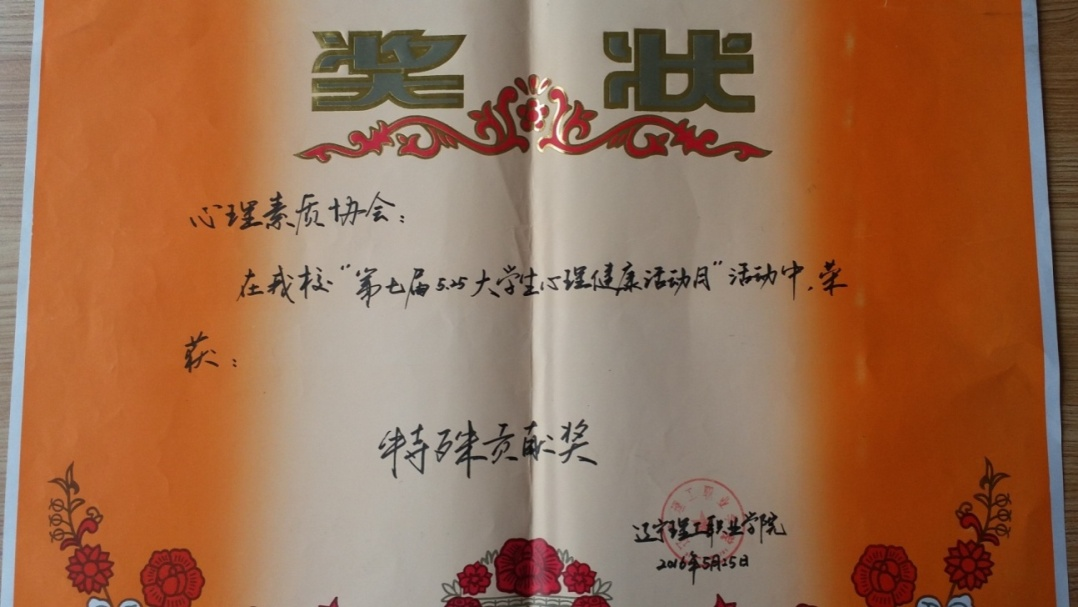 奖 状
心理素质协会：
在我校“第七届5.25大学生心理健康活动月”活动中，荣
获：
特殊贡献奖
辽宁理工职业学院
2016年5月25日